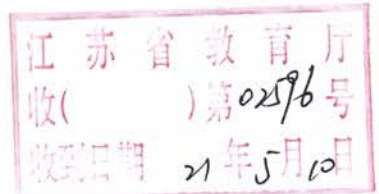 江苏省教育厅
收( )第02596号
收到日期 21年5月10日